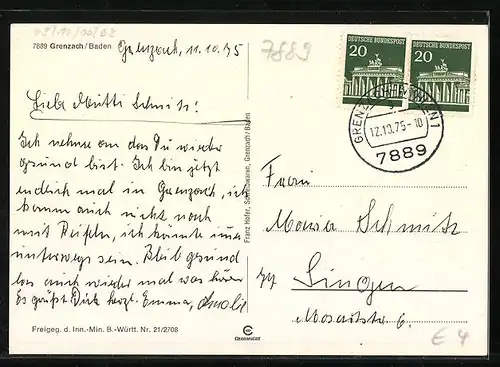 7889 Grenzach/Baden
Grenzach, 11.10.75
7889
DEUTSCHE BUNDESPOST
20
DEUTSCHE BUNDESPOST
20
12.10.75-10
7889
Liebe Mutti Schmitz!
Ich nehme an das Du wieder
gesund bist. Ich bin jetzt
endlich mal in Grenzach, ich
komm auch nicht nach
mit Reisen, ich könnte immer
unterwegs sein. Bleib gesund
las auch wieder mal was hören
Es grüßt Dich herzl. Emma,
Franz Hofer, Schreibwaren, Grenzach/Baden
Frau
Maria Schmitz
Singen
Mozartstr. 6.
Freigeg. d. Inn.-Min. B.-Württ. Nr. 21/2708
€ 4